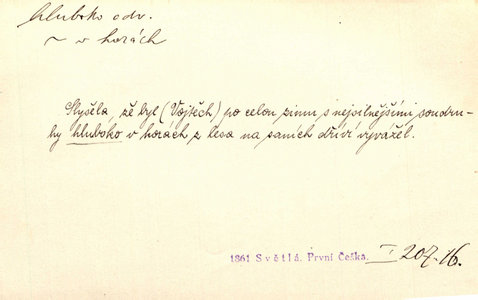 hluboko adv.
~ v horách
Slyšela, že byl (Vojtěch) po celou zimu s nejsilnějšími soudru-
hy hluboko v horách z lesa na saních dříví vyvážel.
1861 Světlá. První Češka. I 207.16.